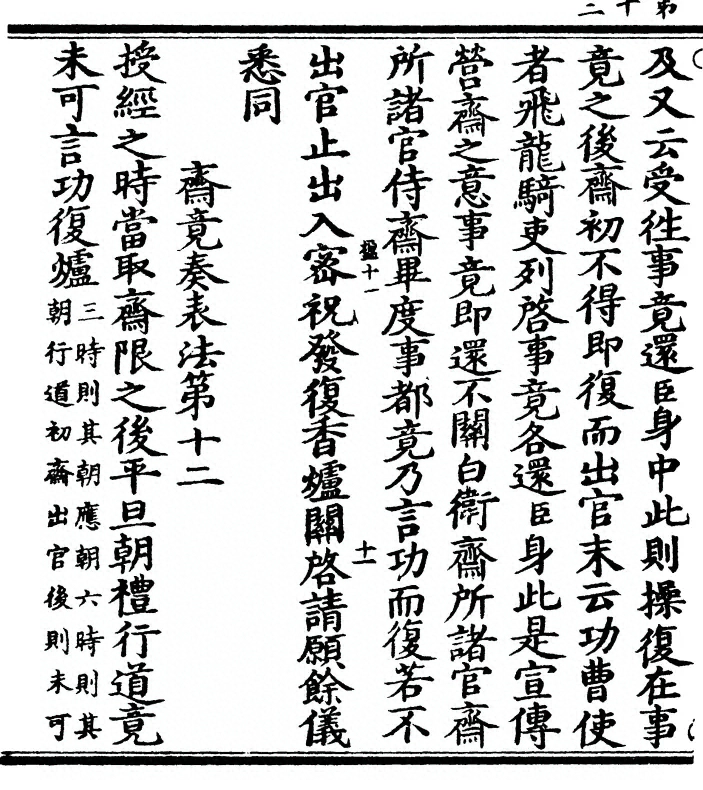 第十二
及又云受徃事竟還臣身中此則操復在事
竟之後齋初不得即復而出官末云功曹使
者飛龍騎吏列啓事竟各還臣身此是宣傳
營齋之意事竟即還不關白衛齋所諸官齋
所諸官侍齋畢度事都竟乃言功而復若不
出官止出入密祝發復香爐關啓請願餘儀
十一
十一
悉同
齋竟奏表法第十二
授經之時當取齋限之後平旦朝禮行道竟
未可言功復爐三時則其朝應朝六時則其
朝行道初齋出官後則未可